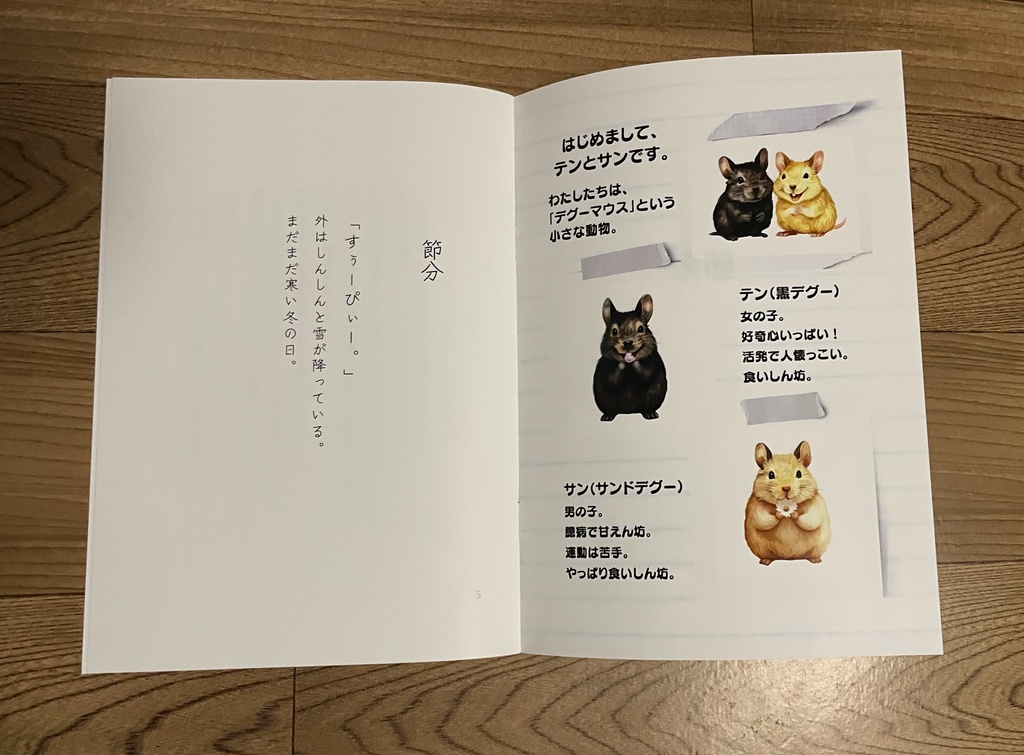 はじめまして、
テンとサンです。
わたしたちは、
「デグーマウス」という
小さな動物。
テン(黒デグー)
女の子。
好奇心いっぱい!
活発で人懐っこい。
食いしん坊。
サン(サンドデグー)
男の子。
臆病で甘えん坊。
運動は苦手。
やっぱり食いしん坊。
節分
「すぅーぴぃー。」
外はしんしんと雪が降っている。
まだまだ寒い冬の日。
5